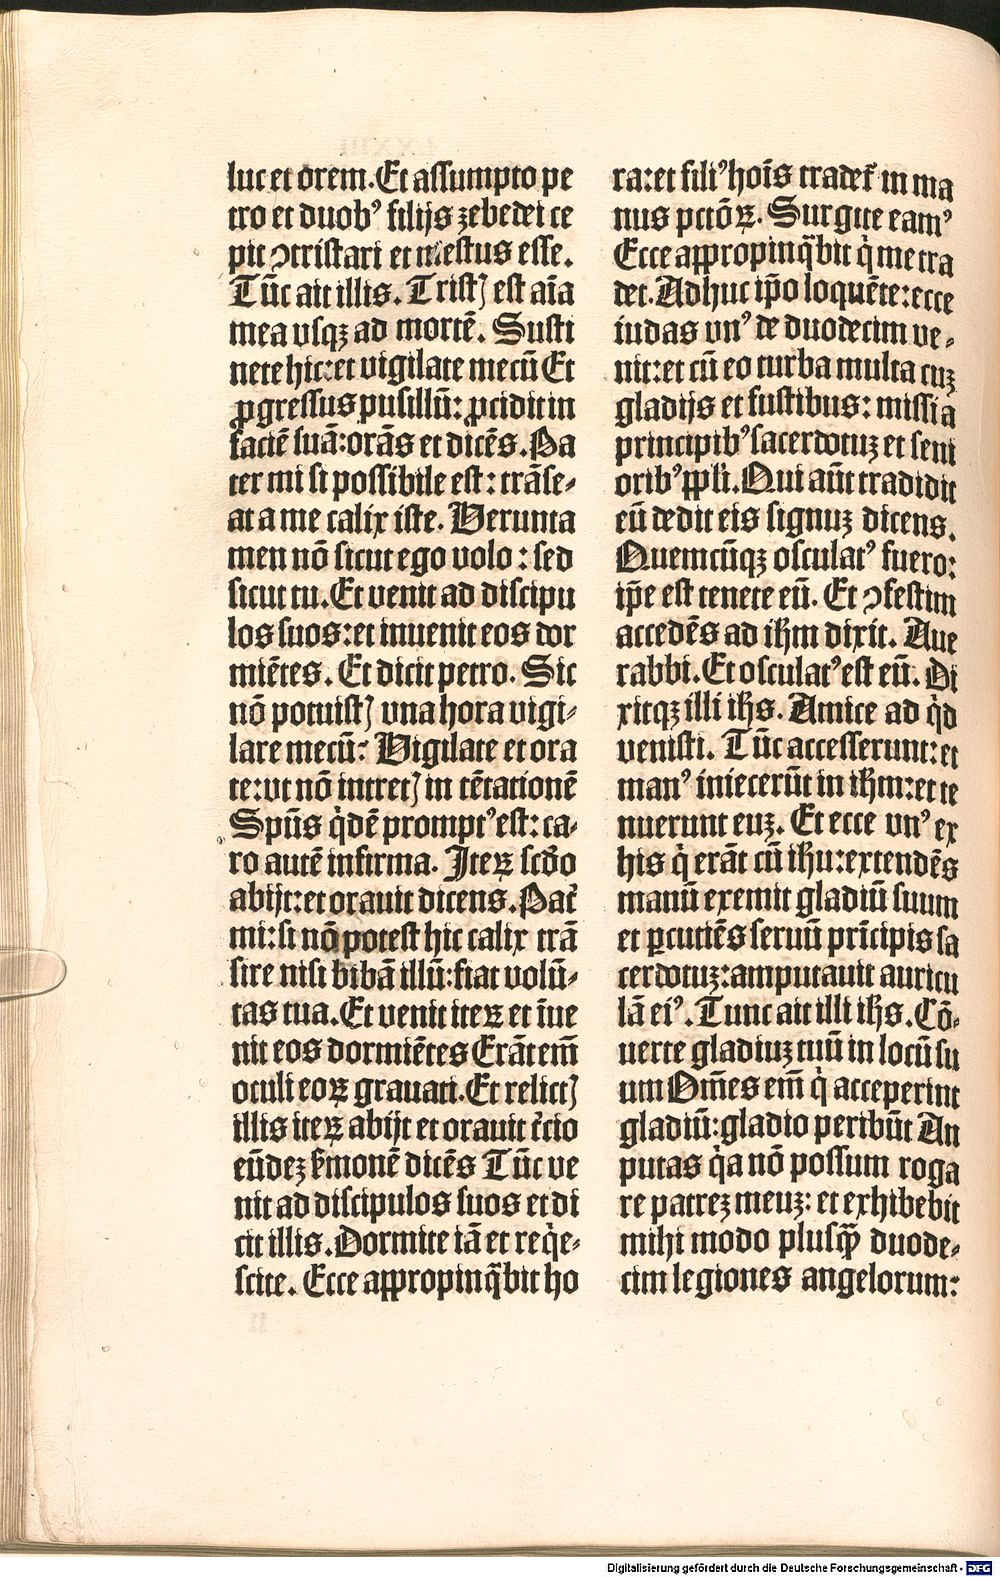 luc et orem. Et assumpto pe
tro et duob⁹ filijs zebedei ce
pit ꝯtristari et mestus esse.
Tūc ait illis. Tristꝭ est aīa
mea vsqꝫ ad mortē. Susti
nete hic: et vigilate mecū Et
ꝓgressus pusillū: ꝓcidit in
faciē suā: orās et dicēs. Pa
ter mi si possibile est: trāse⸗
at a me calix iste. Verunta
men nō sicut ego volo: sed
sicut tu. Et venit ad discipu
los suos: et inuenit eos dor
miētes. Et dicit petro. Sic
nō potuistꝭ vna hora vigi⸗
lare mecū? Vigilate et ora
te: vt nō intretꝭ in tētationē
Spūs q̇dē prompt⁹ est: ca⸗
ro autē infirma. Iteꝝ scd̄o
abijt: et orauit dicens. Pat̄
mi: si nō potest hic calix trā
sire nisi bibā illū: fiat volū⸗
tas tua. Et venit iteꝝ et iue
nit eos dormiētes Erāt em̄
oculi eoꝝ grauati. Et relictꝭ
illis iteꝝ abijt et orauit t̄cio
eūdeꝫ s̄monē dicēs Tūc ve
nit ad discipulos suos et di
cit illis. Dormite iā et reqͥe⸗
scite. Ecce appropinq̄bit ho
ra: et fili⁹ hoīs tradet̄ in ma
nus pctōꝝ. Surgite eam⁹
Ecce appropinq̄bit qͥ me tra
det. Adhuc ip̄o loquēte: ecce
iudas vn⁹ de duodecim ve⸗
nit: et cū eo turba multa cuꝫ
gladijs et fustibus: missi a
principib⁹ sacerdotuꝫ et seni
orib⁹ ppl̄i. Qui aūt tradidit
eū dedit eis signuꝫ dicens.
Quemcūqꝫ osculat⁹ fuero:
ip̄e est tenete eū. Et ꝯfestim
accedēs ad ih̄m dixit. Aue
rabbi. Et osculat⁹ est eū. Di
xitqꝫ illi ih̄s. Amice ad qͥd
venisti. Tūc accesserunt: et
man⁹ iniecerūt in ih̄m: et te
nuerunt euꝫ. Et ecce vn⁹ ex
his qͥ erāt cū ih̄u: extendēs
manū exemit gladiū suum
et ꝑcutiēs seruū prīcipis sa
cerdotuꝫ: amputauit auricu
lā ei⁹. Tunc ait illi ih̄s. Cō⸗
uerte gladiuꝫ tuū in locū su
um Om̄es em̄ qͥ acceperint
gladiū: gladio peribūt An
putas qͥa nō possum roga
re patreꝫ meuꝫ: et exhibebit
mihi modo plusꝙ̄ duode⸗
cim legiones angelorum:
Digitalisierung gefördert durch die Deutsche Forschungsgemeinschaft - DFG